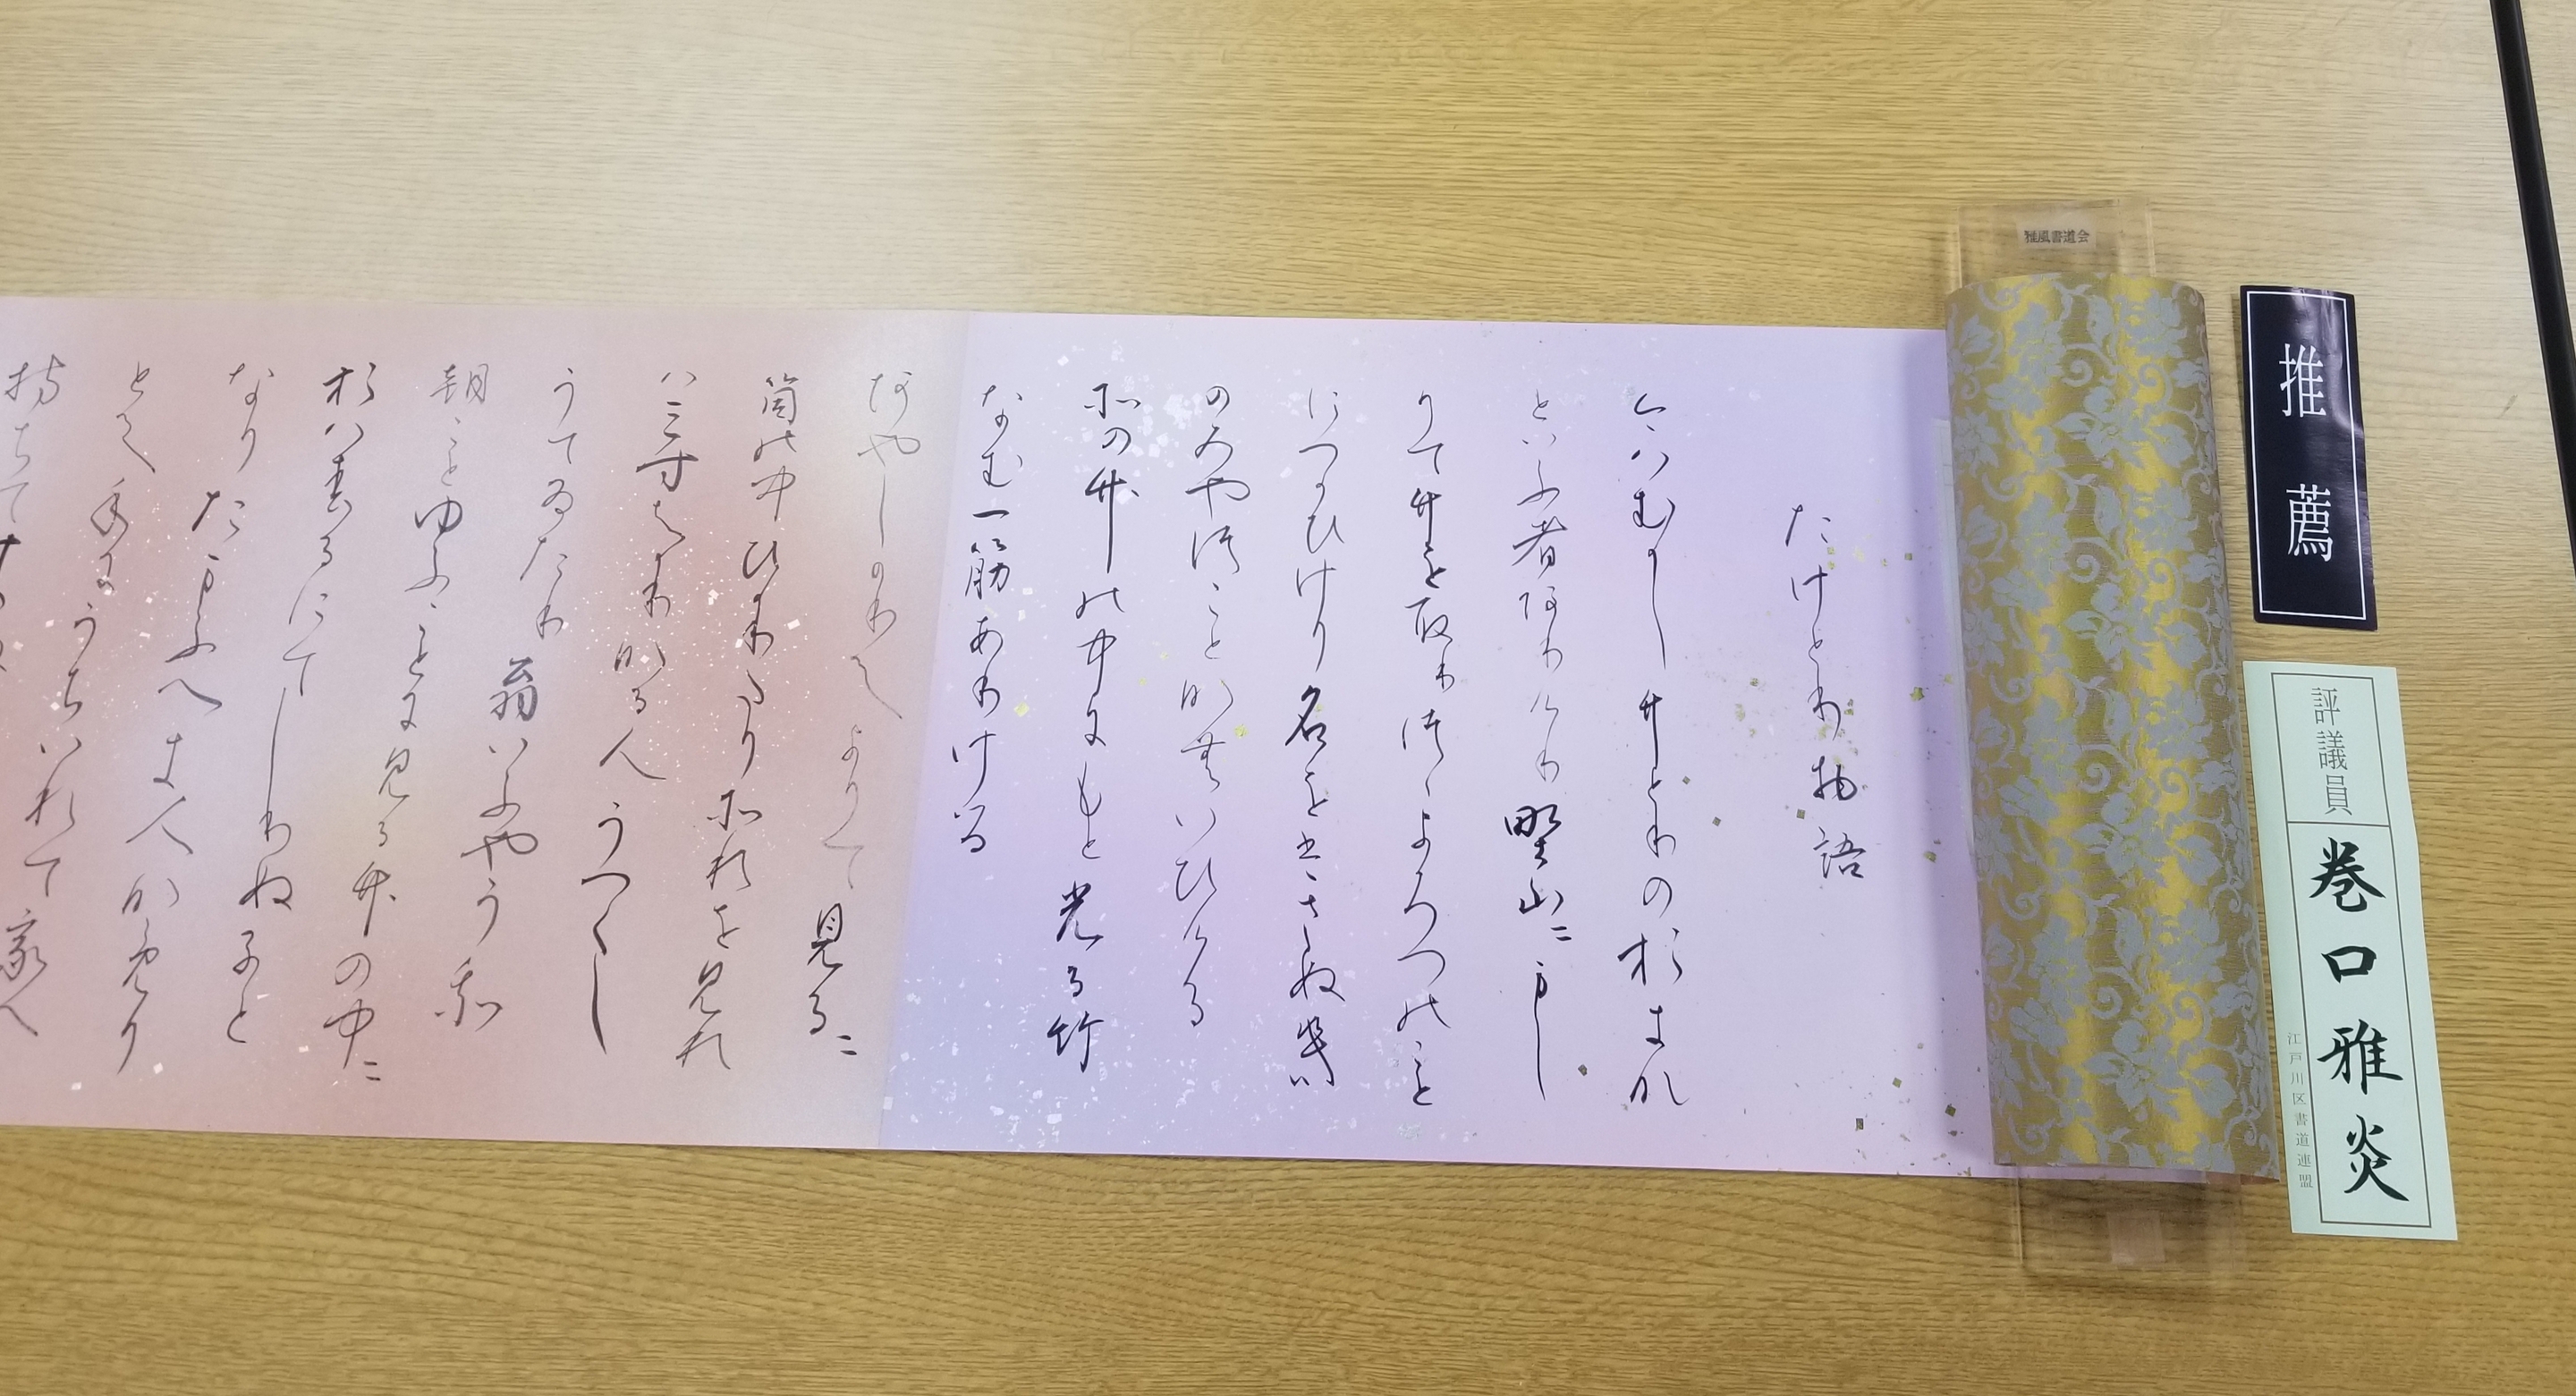 たけとり物語
今ハむかし竹とりのおきな
といふ者ありけり野山ニまし
りて竹を取りつゝよろつのこと
につかひけり名をはさゝぬき
のみやつことなむいひける
その竹の中にもと光る竹
なむ一筋ありける
あやしかりてよりて見るニ
筒の中ひかりたりそれを見れ
ハ三寸はかりなる人うつくし
うてゐたり翁いふやうわれ
朝ことゆふことに見る竹の中ニ
おハするにてしりぬ子と
なりたまふへき人なめり
とて手にうちいれて家へ
持ちて
雅風書道会
推薦
評議員
巻口雅炎
江戸川区書道連盟